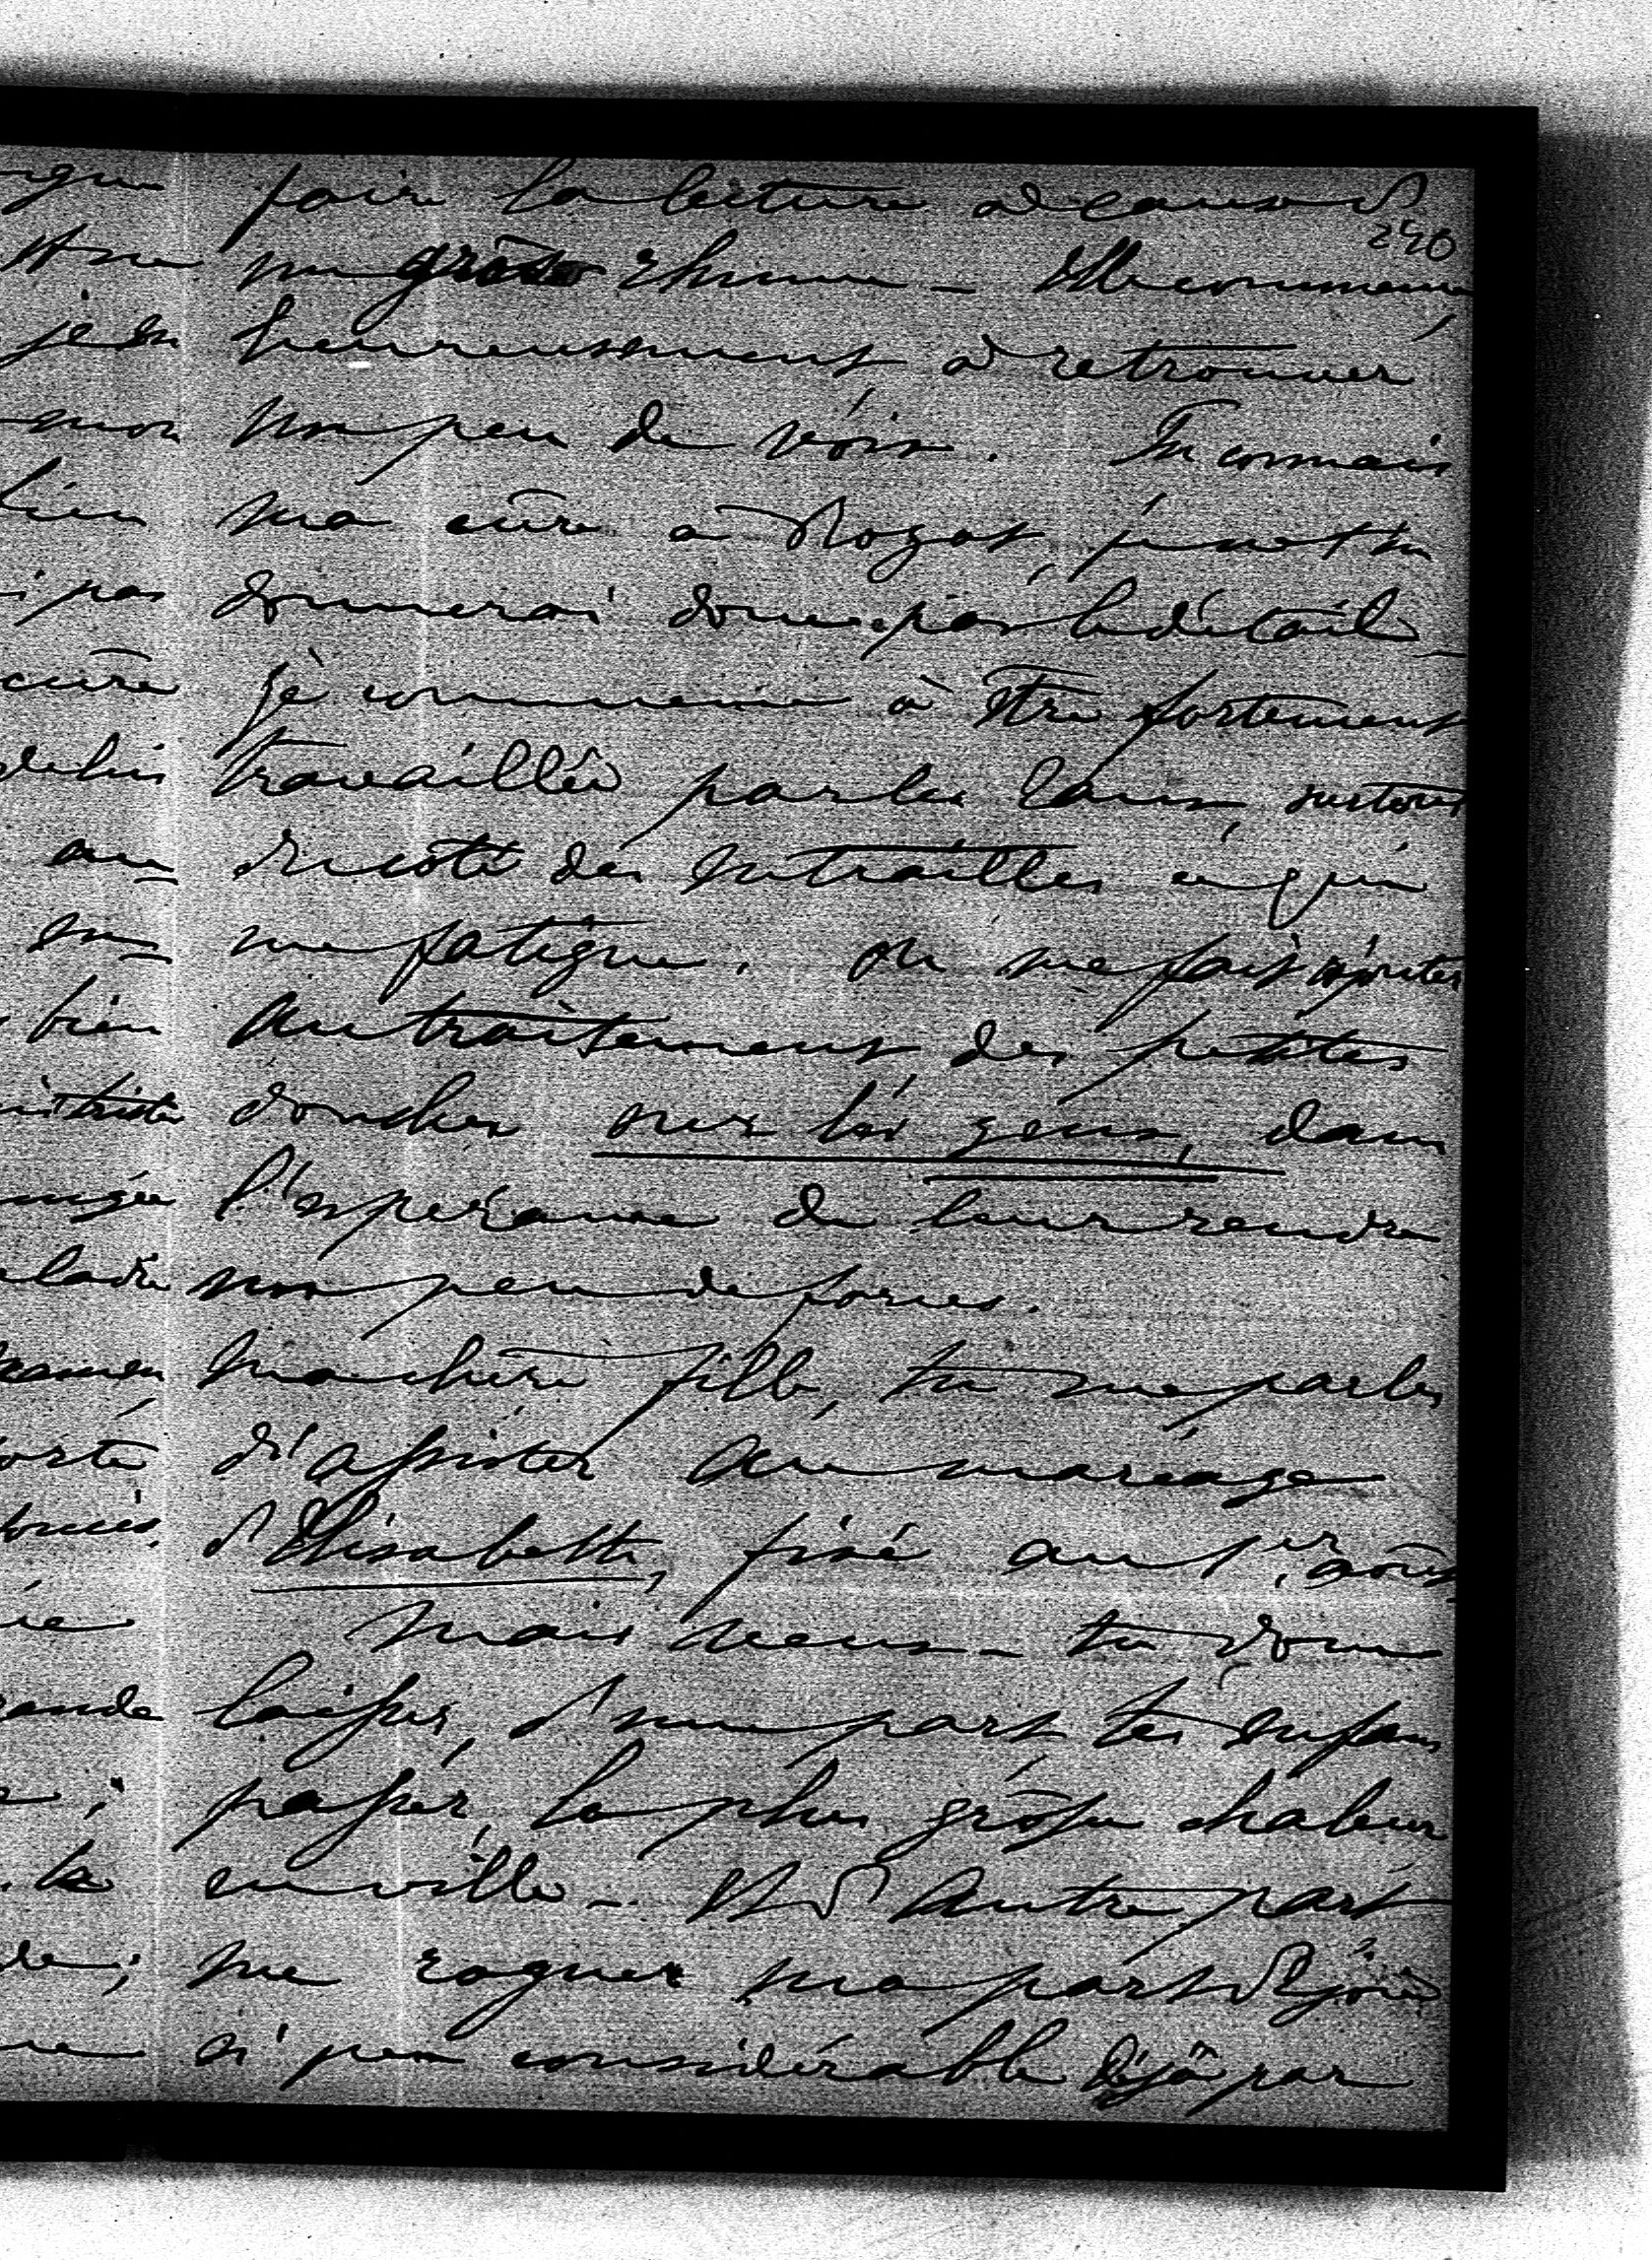 faire la lecture à cause d'
240
un gros rhume – Elle commence
heureusement à retrouver
un peu de voix. Tu connais
ma cûre a Royat, je ne t'en
donnerai donc pas le détail –
je commence à être fortement
travaillée par les Eaux, surtout
du coté des entrailles ce qui
me fatigue. On me fait ajouter
au traitement, des petites
douches sur les genoux, dans
l'espérance de leur rendre
un peu de forces.
Ma chère fille, tu me parles
d'assister au mariage
d'Elisabeth, fixé au 1er août
Mais veux-tu donc
laisser, d'une part tes enfans
passer, la plus grosse chaleur
en ville – Et d'autre part
me rogner ma part de joie
si peu considérable déjà par
bien
pas
cûre
mon
au
en
bien